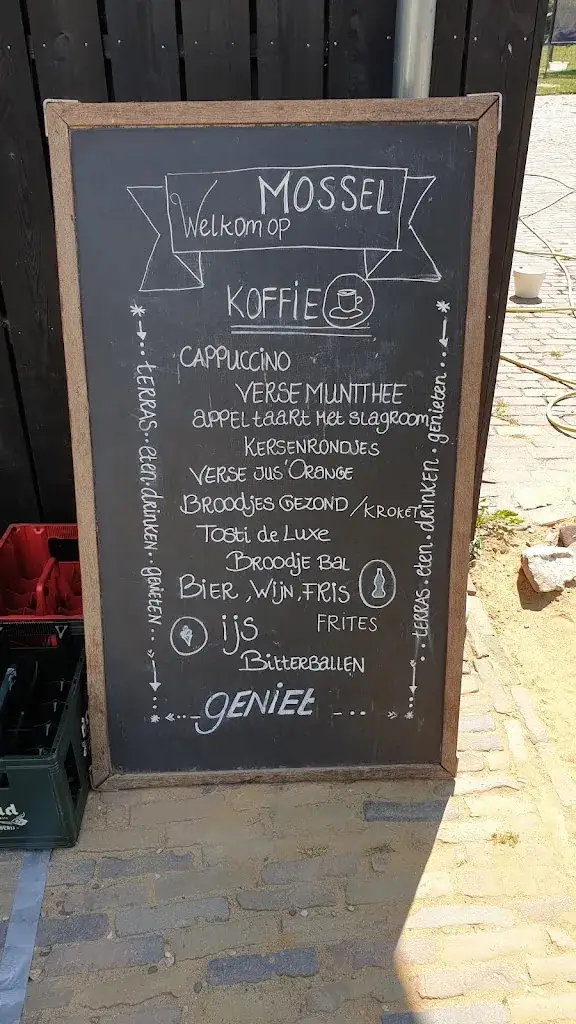 MOSSEL
Welkom op
KOFFIE
CAPPUCCINO
VERSE MUNTTHEE
APPELTAART MET SLAGROOM
KERSENRONDJES
VERSE JUS'ORANGE
BROODJES GEZOND / KROKET
TOSTI de LUXE
BROODJE BAL
BIER, WIJN, FRIS
FRITES
ijs
BITTERBALLEN
GENIET
TERRAS.. eten. drinken.. genieten..
TERRAS. eten. drinken. genieten..